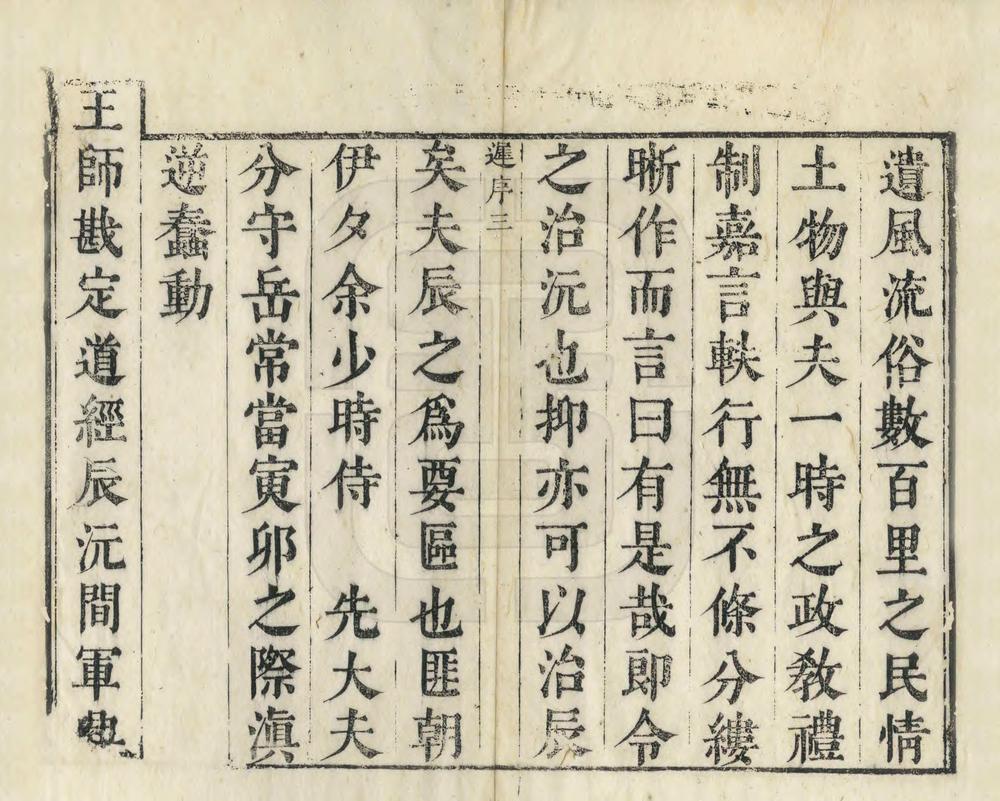 遺風流俗數百里之民情
土物與夫一時之政教禮
制嘉言軼行無不條分縷
晰作而言曰有是哉即令
之治沅也抑亦可以治辰
遲序三
矣夫辰之為要區也匪朝
伊夕余少時侍　先大夫
分守岳常當寅卯之際滇
逆蠢動
王師戡定道經辰沅間軍